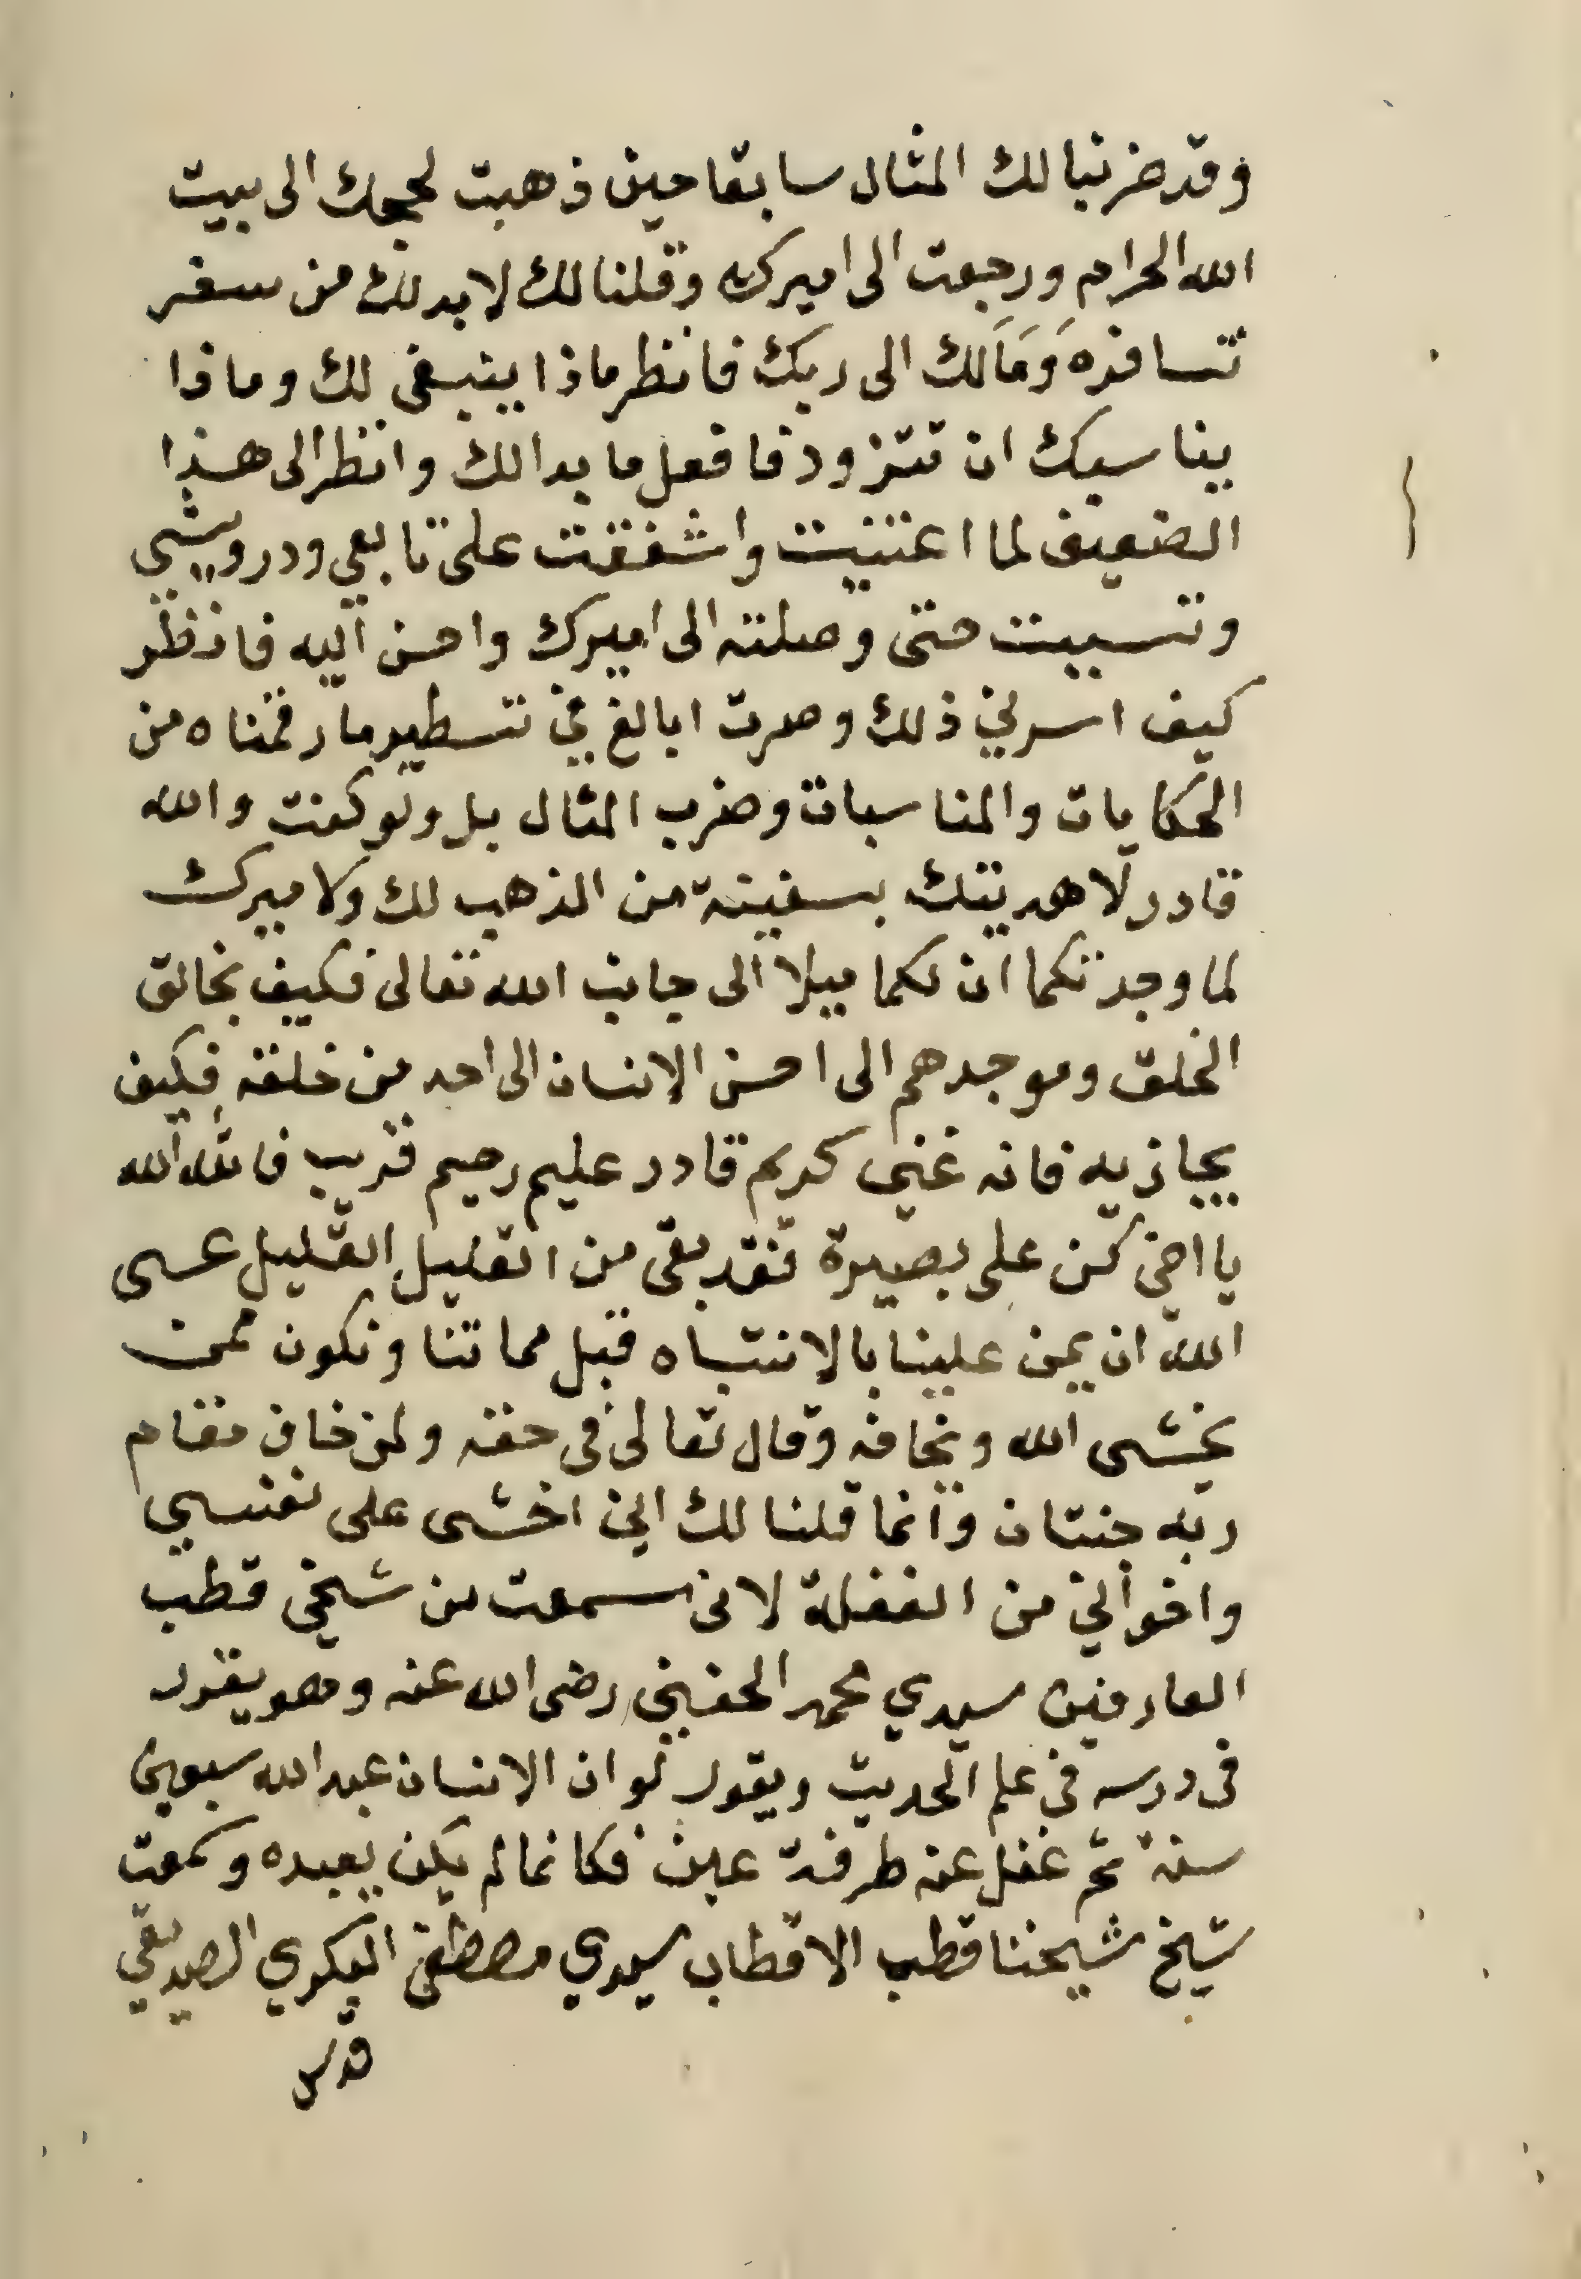 وقد ضربنا لك المثال سابقا حين ذهبت لحجك الى بيت
الله الحرام ورجعت الى اميرك وقلنا لك لا بد لك من سفر
تسافره وَمَآلك الى ربك فانظر ماذا ينبغي لك وماذا
يناسبك ان تتزود فافعل ما بدا لك وانظر الى هذا
الضعيف لما اعتنيت واشفقت على تابعي ودرويشي
وتسببت حتى وصلته الى اميرك واحسن اليه فانظر
كيف اسرني ذلك وصرت ابالغ في تسطير ما رقمناه من
الحكايات والمناسبات وضرب المثال بل ولو كنت والله
قادر لاهديتك بسفينة من الذهب لك ولاميرك
لما وجدتكما ان لكما ميلا الى جانب الله تعالى فكيف بخالق
الخلق وموجدهم الى احسن الانسان الى احد من خلقه فكيف
يجازيه فانه غني كريم قادر عليم رحيم قريب فالله الله
يا اخي كن على بصيرة فقد بقى من القليل القليل عسى
الله ان يمن علينا بالانتباه قبل مماتنا ونكون ممن
يخشى الله ويخافه وقال تعالى في حقه ولمن خاف مقام
ربه جنتان وانما قلنا لك اني اخشى على نفسي
واخواني من الغفلة لاني سمعت من شيخي قطب
العارفين سيدي محمد الحفني رضى الله عنه وهو يقرر
في درسه في علم الحديث ويقول لو ان الانسان عبد الله سبعين
سنة ثم غفل عنه طرفة عين فكانما لم يكن يعبده وسمعت
شيخ شيخنا قطب الاقطاب سيدي مصطفى البكري الصديقي
قدس